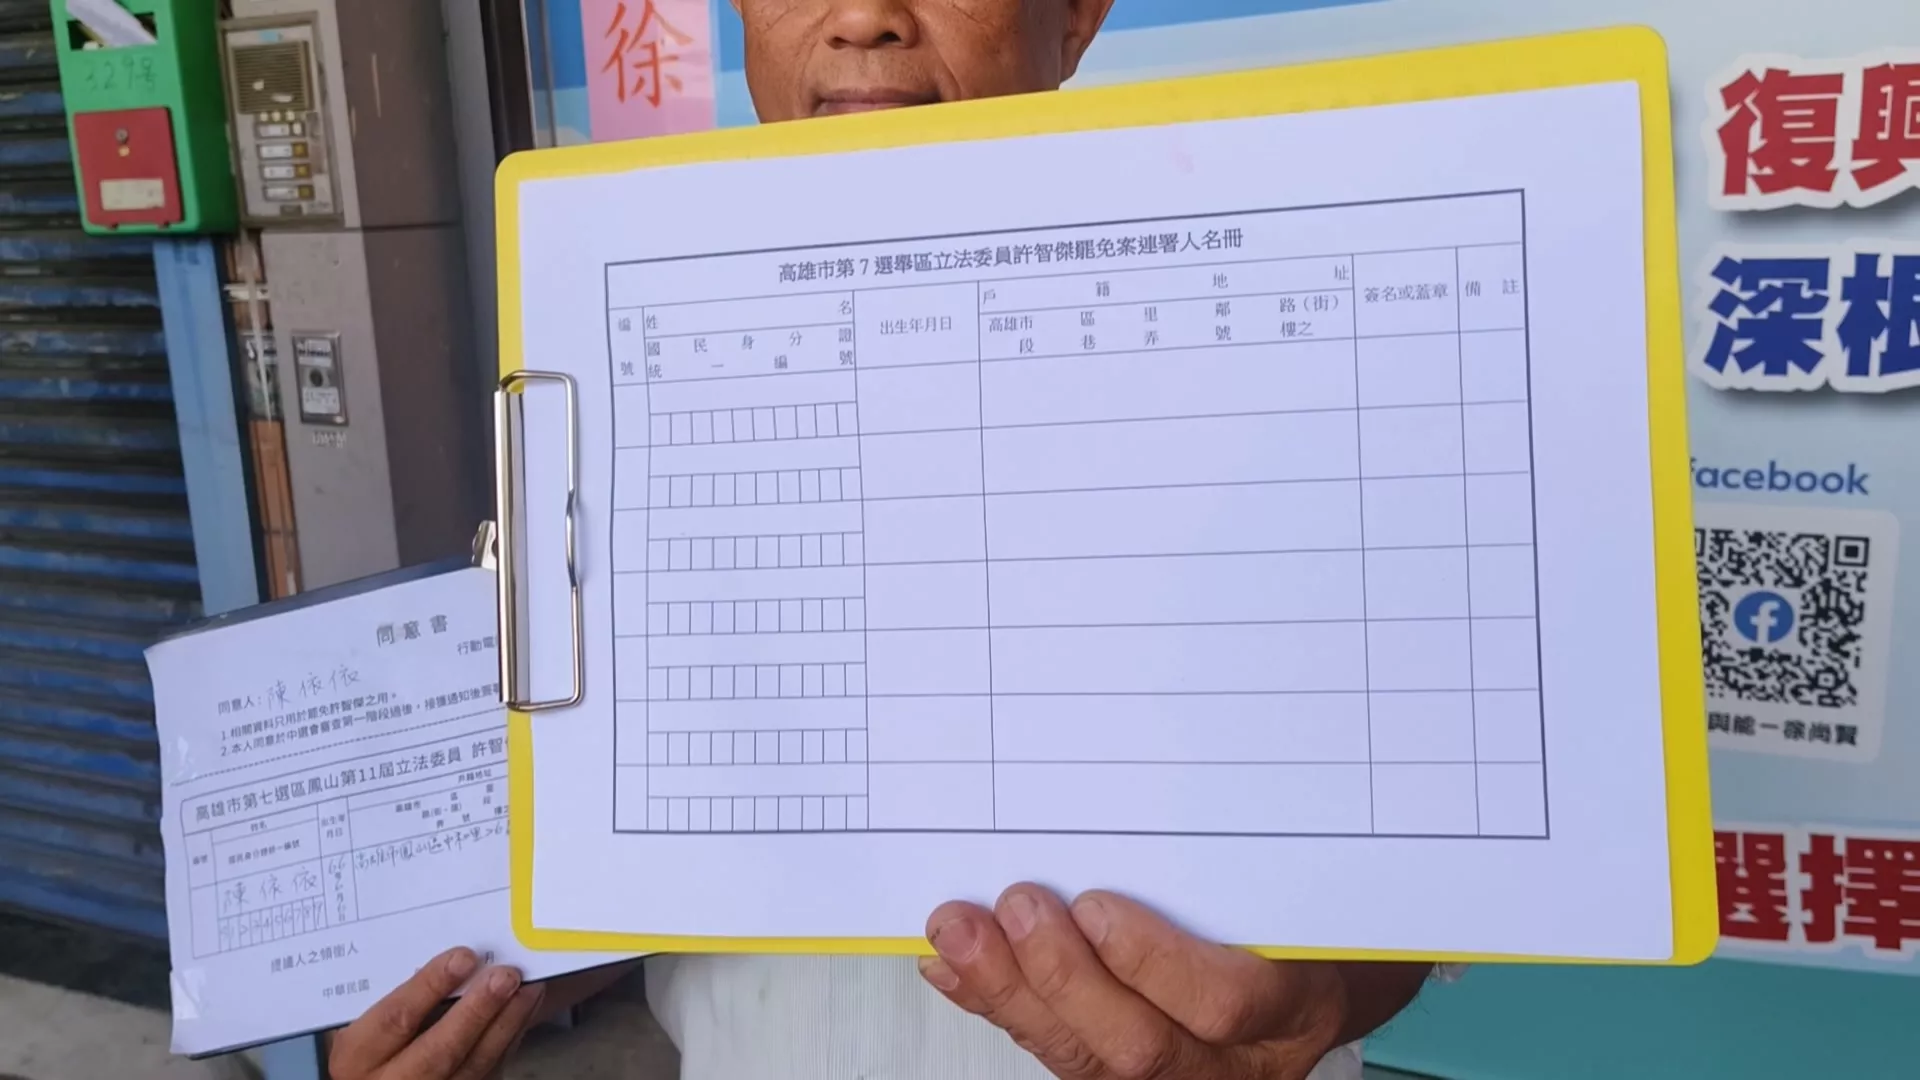 329号
徐
復興
深根
facebook
與龍一徐尚賢
選擇
高雄市第7選舉區立法委員許智傑罷免案連署人名冊
編號
姓名
國民身分證
統一編號
出生年月日
戶籍地址
高雄市 區 里 鄰 路（街）
段 巷 弄 號 樓之
簽名或蓋章
備註
同意書
行動電
同意人：陳依依
1.相關資料只用於罷免許智傑之用。
2.本人同意於中選會審查第一階段過後，接獲通知後簽
高雄市第七選區鳳山第11屆立法委員 許智
編號
姓名
國民身分證統一編號
出生年月日
戶籍地址
高雄市 區 里
路(街、段) 段
弄 號 樓之
陳依依
66年6月6日
高雄市鳳山區中和里26
提議人之領銜人
中華民國
月